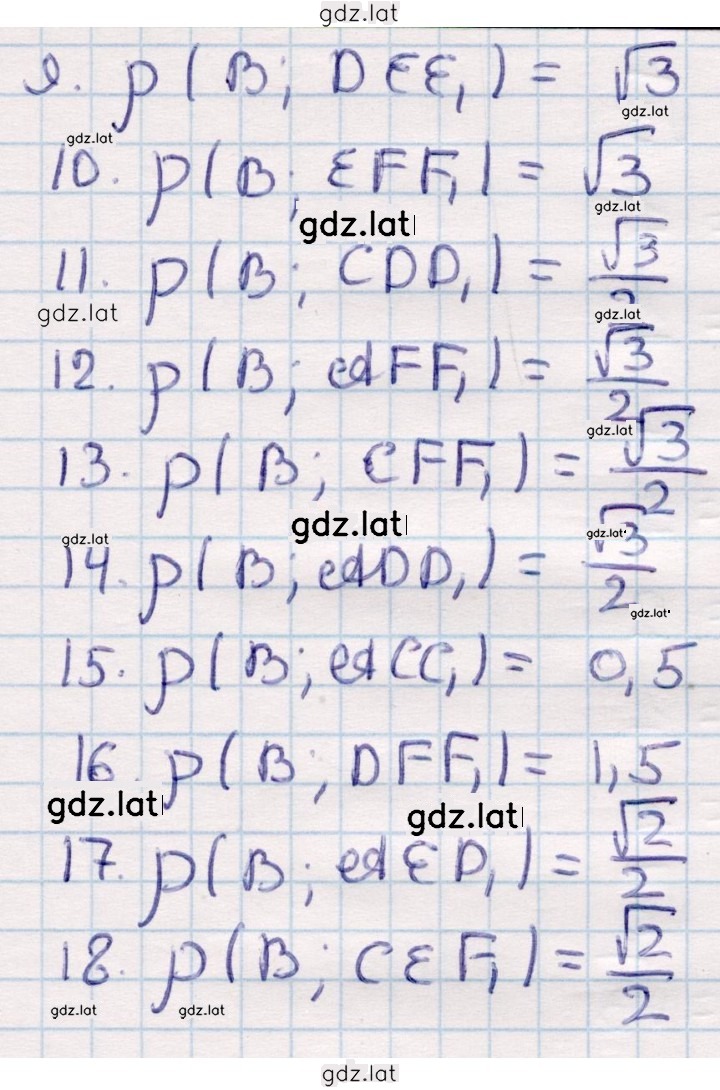 gdz.lat
9. ρ(B; DEE₁) = √3
gdz.lat
gdz.lat
10. ρ(B; EFF₁) = √3
gdz.lat
gdz.lat
11. ρ(B; CDD₁) = √3/2
gdz.lat
gdz.lat
12. ρ(B; AFF₁) = √3/2
gdz.lat
13. ρ(B; CFF₁) = √3/2
gdz.lat
gdz.lat
gdz.lat
14. ρ(B; ADD₁) = √3/2
gdz.lat
15. ρ(B; ACC₁) = 0,5
16. ρ(B; DFF₁) = 1,5
gdz.lat
gdz.lat
17. ρ(B; AED₁) = √2/2
18. ρ(B; CEF₁) = √2/2
gdz.lat
gdz.lat
gdz.lat